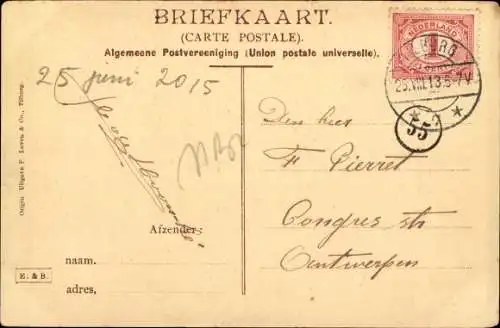 BRIEFKAART.
(CARTE POSTALE).
Algemeene Postvereeniging (Union postale universelle).
NEDERLAND
25.VIII.13.5-7V
55
25 juni 2015
Den heer
F Pierret
Congres str
Antwerpen
Afzender:
naam.
adres,
E. & B.
Origin. Uitgave F. Leyten & Co., Tilburg.